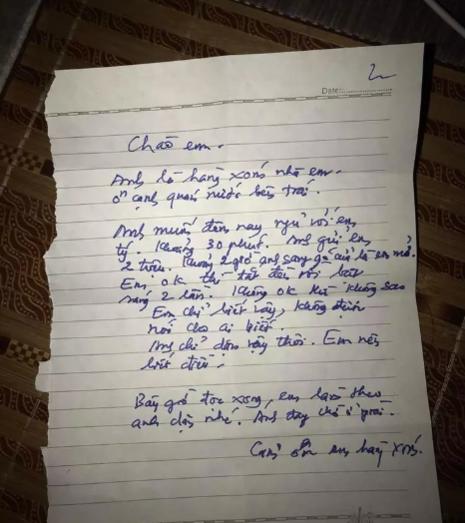 Date:
Chào em.
Anh là hàng xóm nhà em.
Ở cạnh quán nước bên trái.
Anh muốn đêm nay ngủ với em
tý. Khoảng 30 phút. Anh gửi em
2 triệu. Khoảng 2 giờ anh sang gõ cửa là em mở.
Em ok thì tắt đèn rồi bật
sáng 2 lần. Không ok thì không sao
Em chỉ biết vậy, không được
nói cho ai biết.
Anh chỉ dặn vậy thôi. Em nên
biết điều!
Bây giờ đọc xong, em làm theo
anh dặn nhé. Anh đây chờ ở
Cảm ơn em hàng xóm.